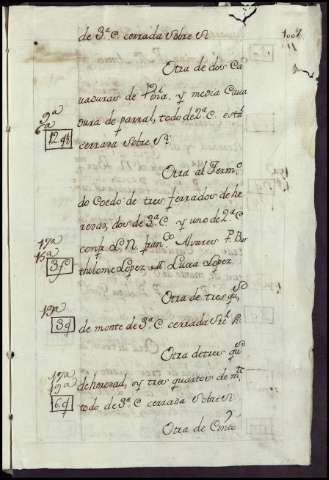 de 3ª C. cerrada sobre si
Otra de dos Ca
vaduras de Viña, y media Cava
dura de parral, todo de 2ª C. está
cerrara sobre Sí.
Otra al Termº
do Coedo de tres ferrados de he
redad, dos de 3ª C. y uno de 2ª C
confª L. N. franco Alvarez P. Bar
tholome Lopez M. Lucia Lopez
Otra de tres qs
3q de monte de 3ª C. cerrada Sre si
Otra de tres qs
de heredad, y tres quartos de mte
6q todo de 3ª C cerrada sobre si
Otra de Cinco